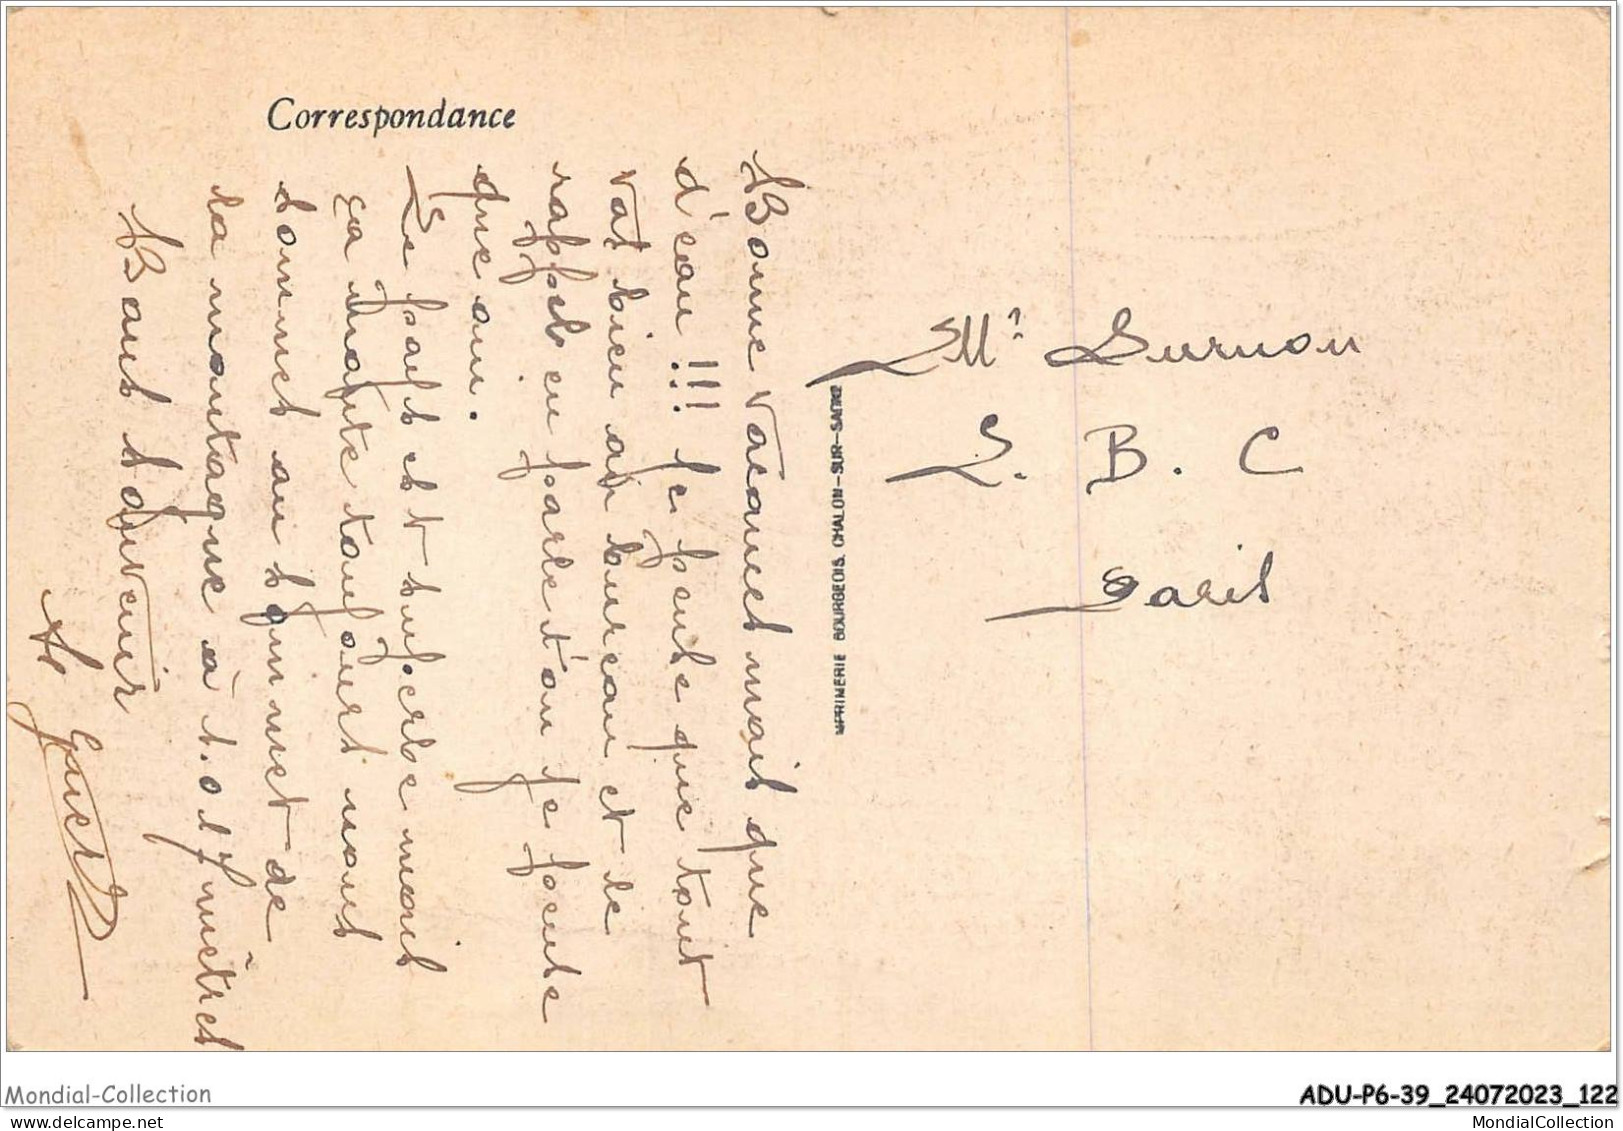 Correspondance
Bonne vacances mais que
d'eau !!! Je pense que tout
vas bien au bureau et le
en parle t'on je pense
que oui.
Le pays est superbe mais
ça monte toujours nous
sommes au sommet de
la montagne à 1.017 mètres
Bons souvenir
IMPRIMERIE BOURGEOIS. CHALON-SUR-SAONE
Mr Surnon
S. B. C
Paris
Mondial-Collection
ADU-P6-39_24072023_122
delcampe.net
MondialCollection